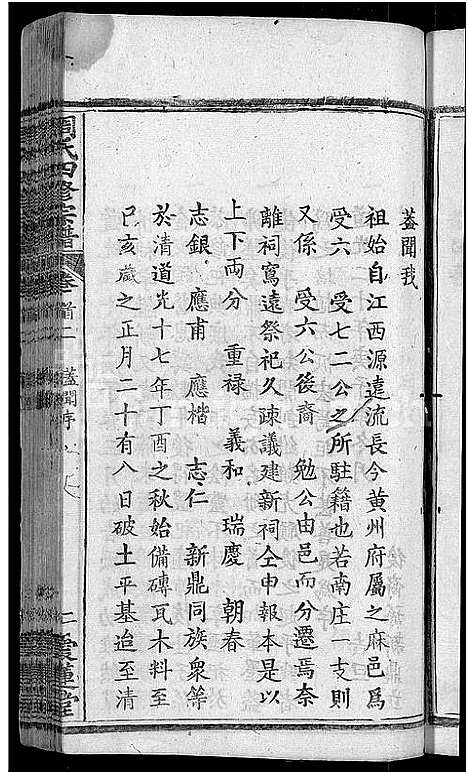 蓋聞我
祖始自江西源遠流長今黄州府屬之麻邑爲
受六　受七二公之所駐籍也若南庄一支則
又係　受六公後裔　勉公由邑而分遷焉奈
離祠寫遠祭祀久疎議建新祠仝申報本是以
上下両分　重禄　義和　瑞慶　朝春
志銀　應甫　應楷　志仁　新鼎同族衆等
於清道光十七年丁酉之秋始備磚瓦木料至
已亥歲之正月二十有八日破土平基迨至清
周氏四修宗譜　卷首二　蓋聞序